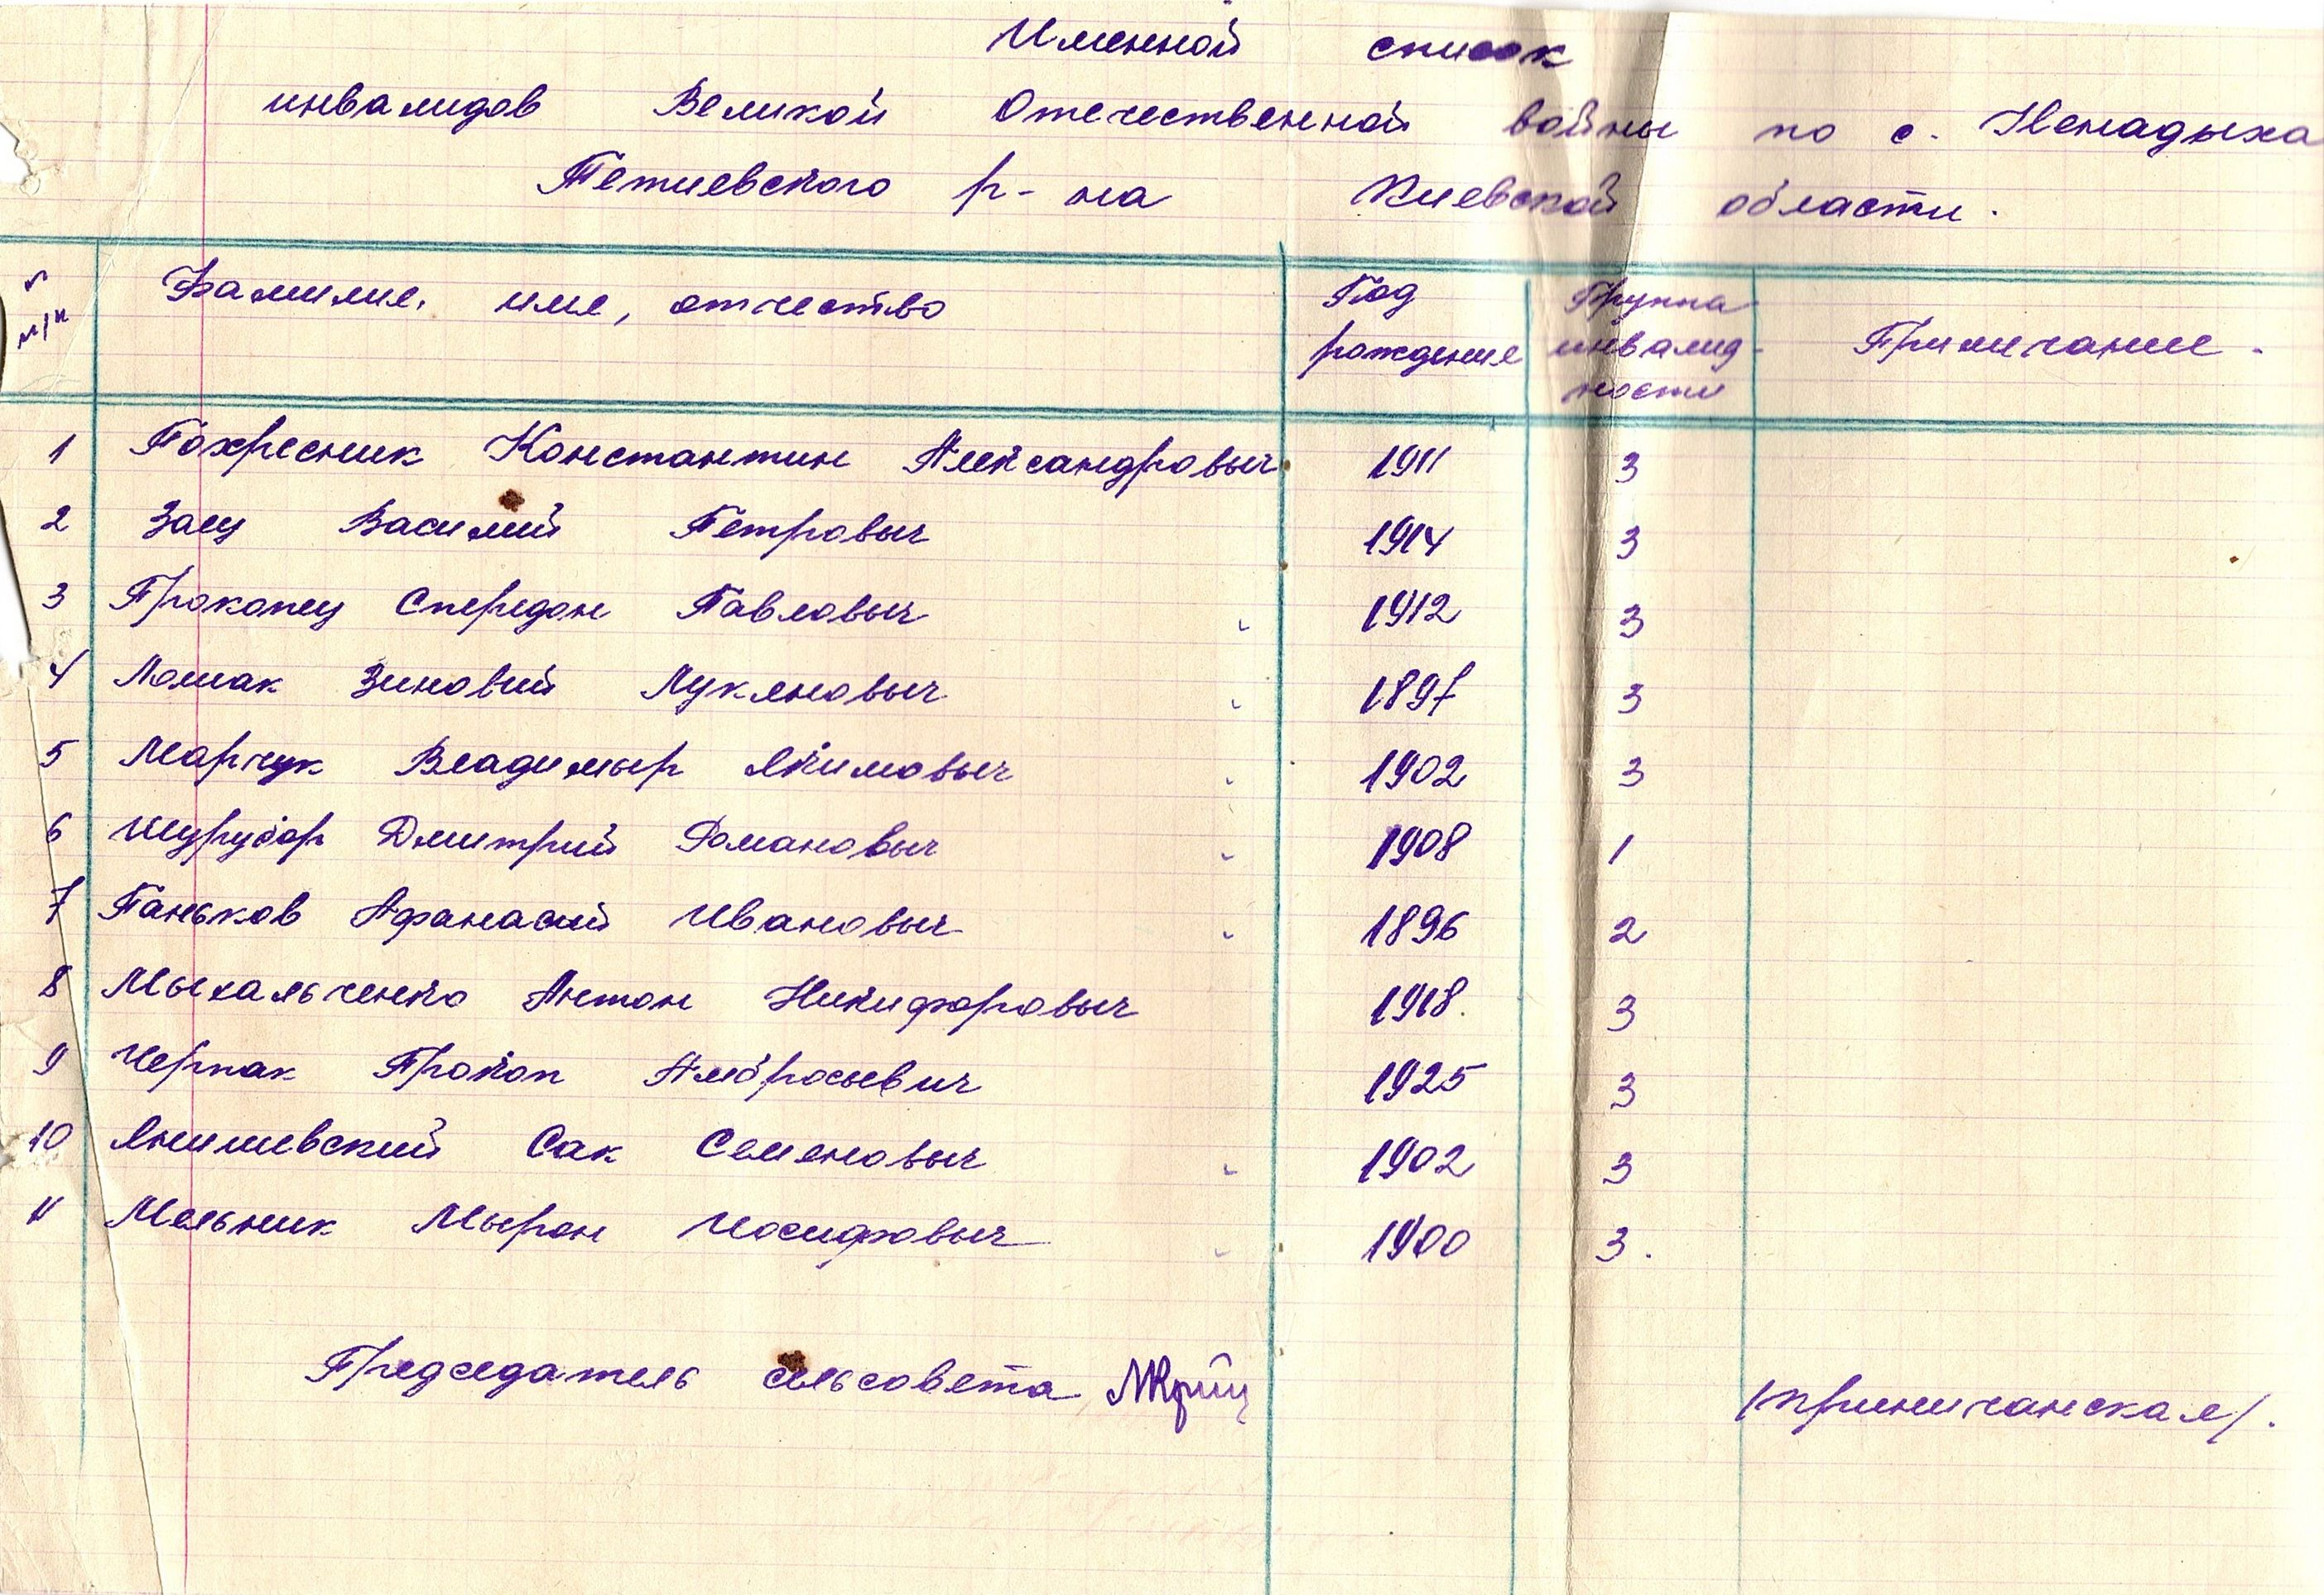 Именной список
инвалидов Великой Отечественной войны по с. Ненадыха
Тетиевского р-на Киевской области.
№ п/п Фамилия, имя, отчество Год рождение Группа инвалид-ности Примичание.
1 Похресник Константин Александровыч 1911 3
2 Заец Василий Петровыч 1914 3
3 Прокопец Спередон Павловыч 1912 3
4 Лошак Зиновий Лукяновыч 1897 3
5 Марчук Владимыр Якимовыч 1902 3
6 Шурубор Дмитрий Романовыч 1908 1
7 Паньков Афанасий Ивановыч 1896 2
8 Мыхальченко Антон Никифоровыч 1918. 3
9 Черпак Прокоп Амбросьевич 1925 3
10 Янишевский Сак Семеновыч 1902 3
11 Мельник Мырон Иосифовыч 1900 3.
Председатель сельсовета /Криничанская/.